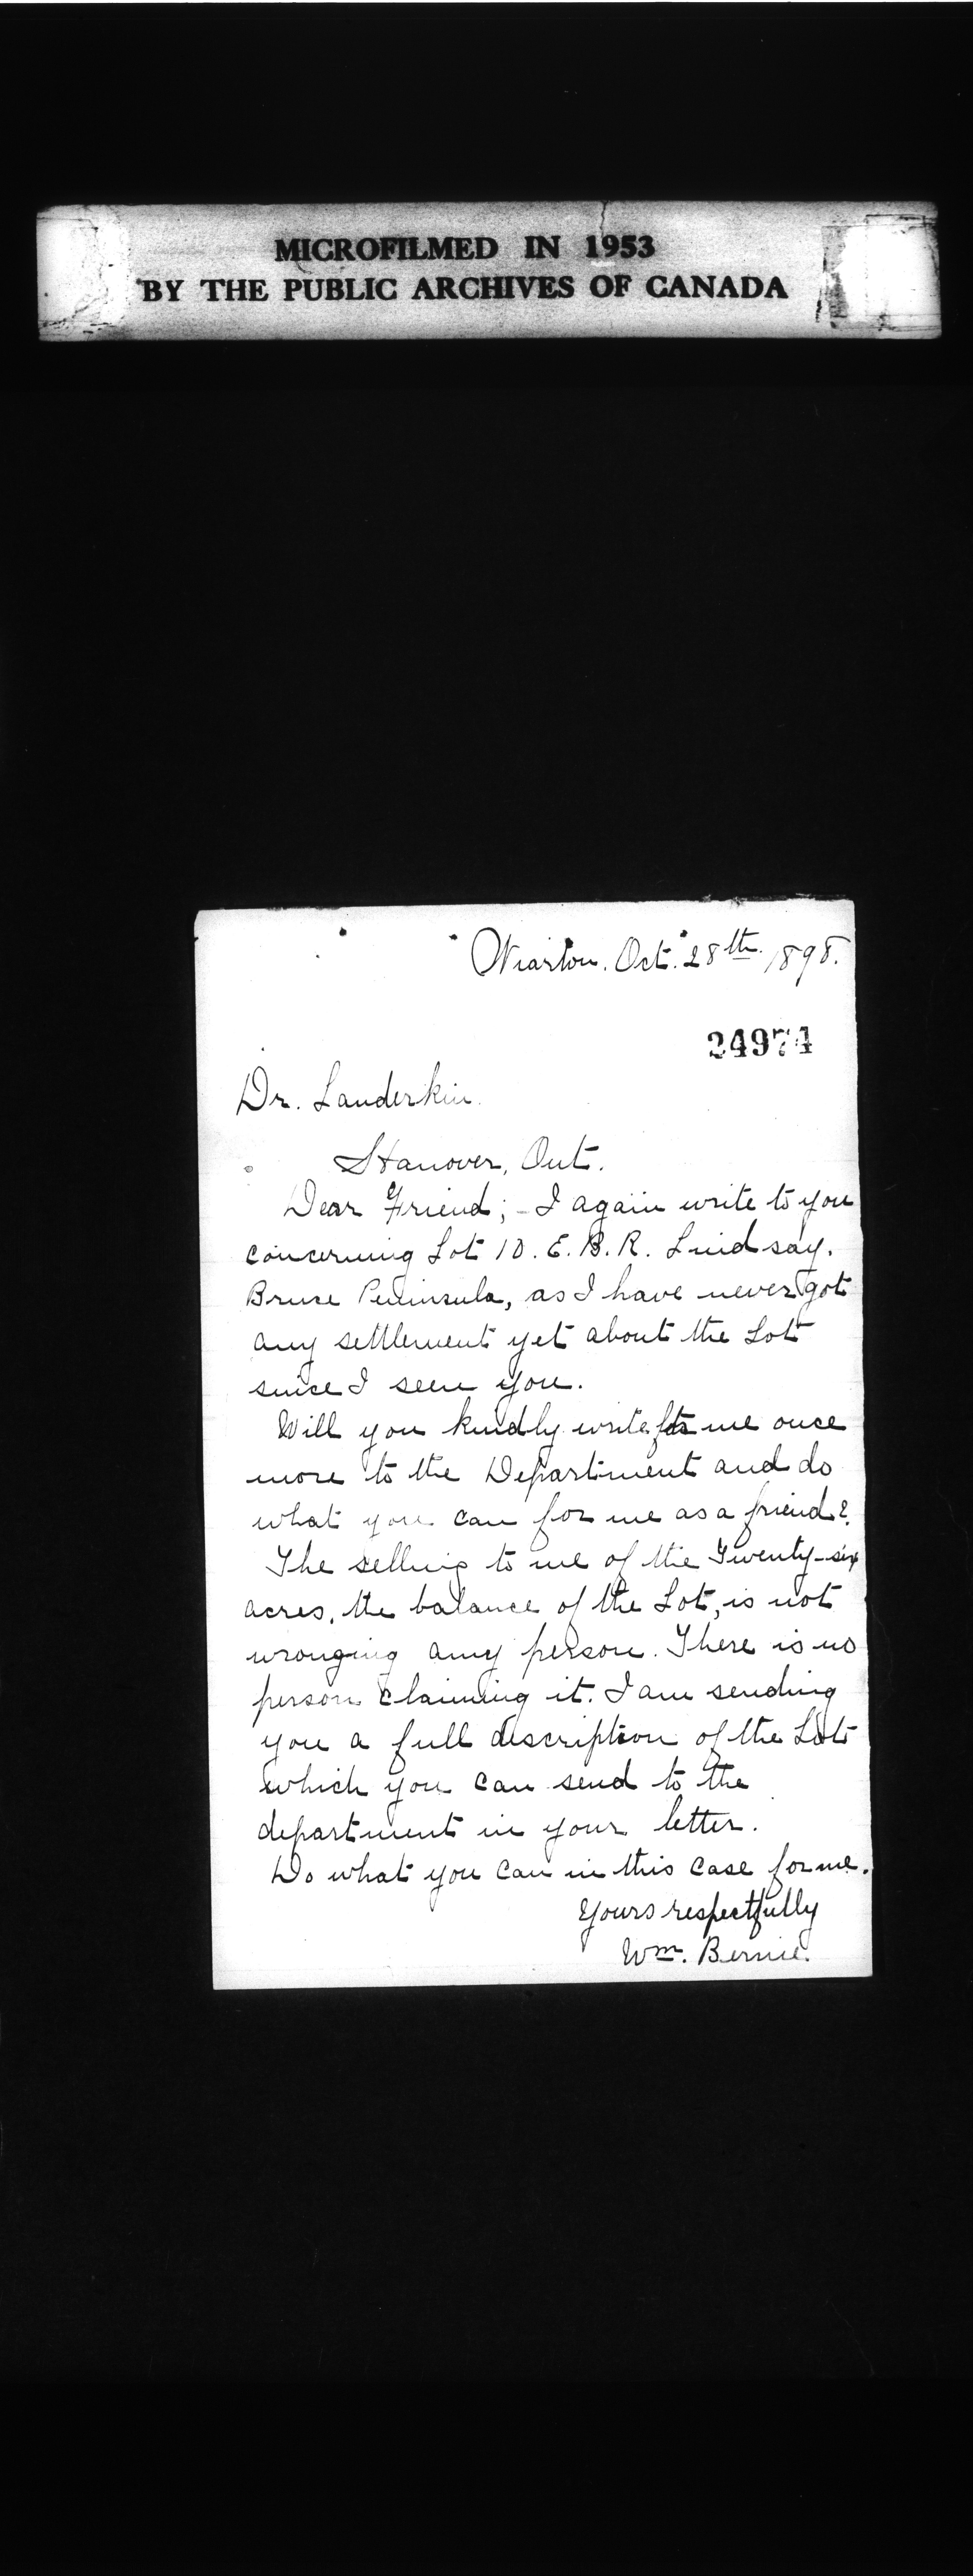 MICROFILMED IN 1953
BY THE PUBLIC ARCHIVES OF CANADA
Wiarton. Oct. 28th. 1898.
24974
Dr. Landerkin.
Hanover, Ont.
Dear Friend; - I again write to you
concerning Lot 10. E. B. R. Lindsay.
Bruce Peninsula, as I have never got
any settlement yet about the Lot
since I seen you.
Will you kindly write for me once
more to the Department and do
what you can for me as a friend?
The selling to me of the Twenty-six
acres, the balance of the Lot, is not
wronging any person. There is no
person claiming it. I am sending
you a full description of the Lot
which you can send to the
department in your letter.
Do what you can in this case for me.
Yours respectfully
Wm. Bernie.